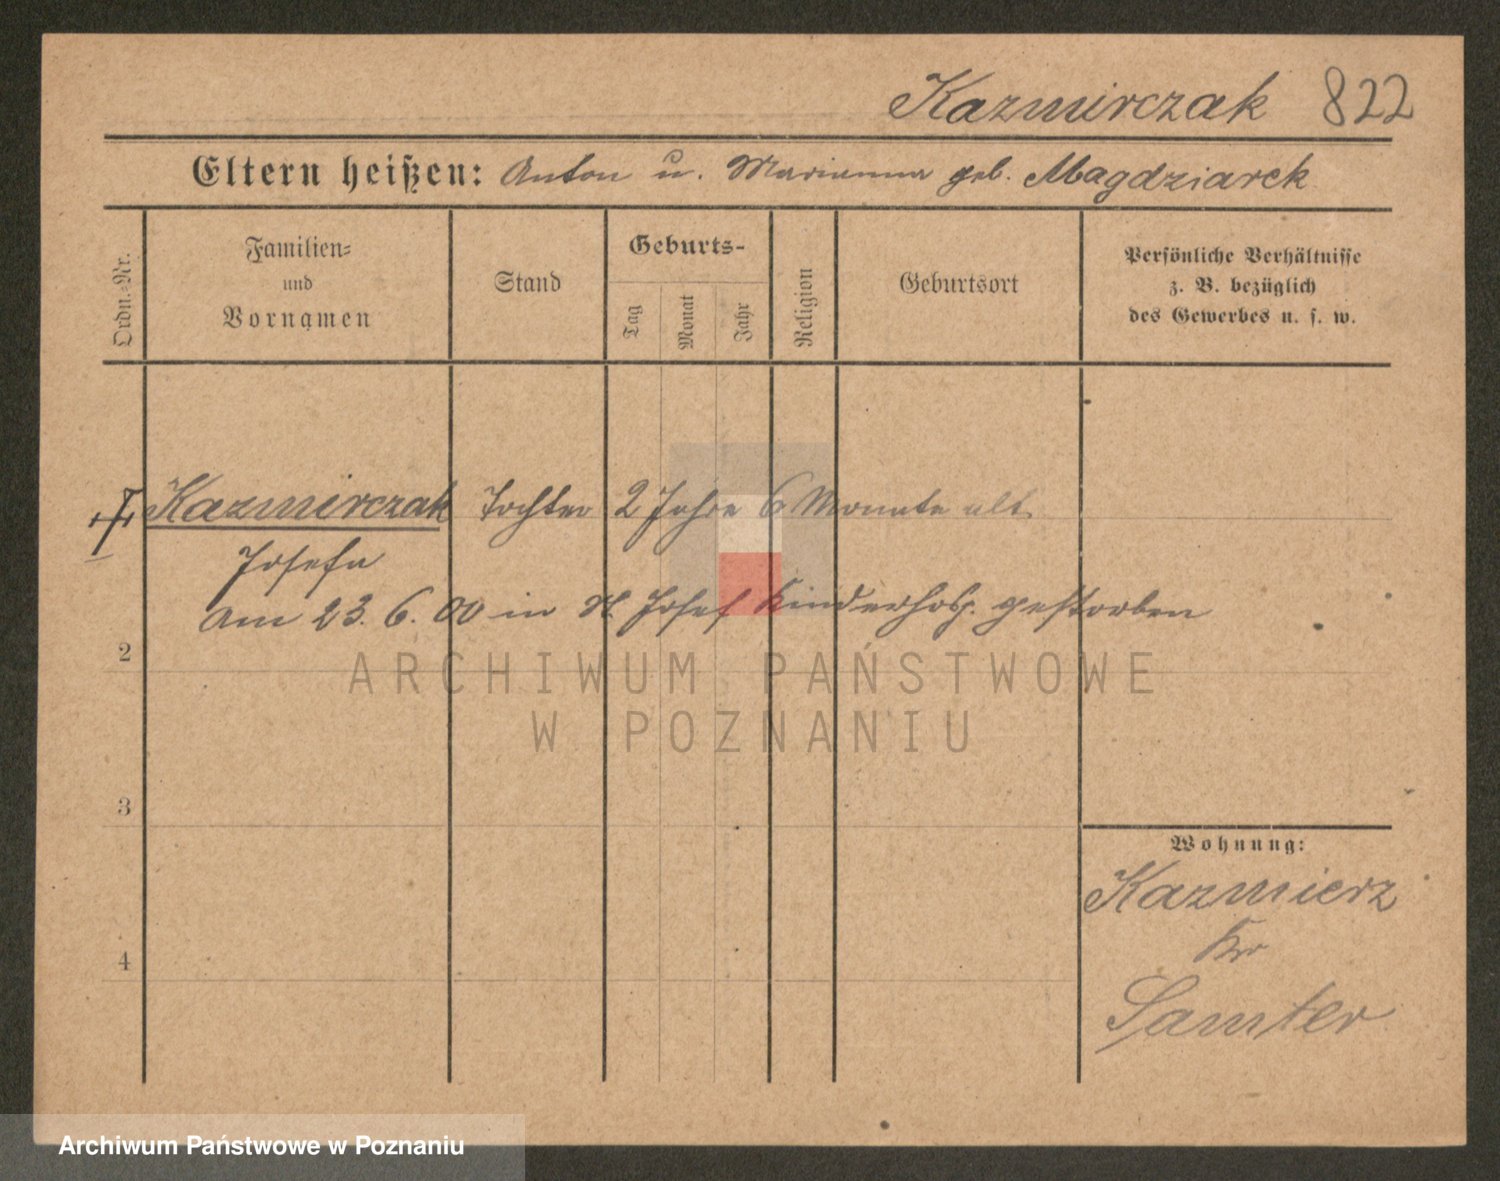 Kazmirczak 822
Eltern heißen: Anton u. Marianna geb. Magdziarek
Ordn.-Nr.
Familien- und Vornamen
Stand
Geburts-
Tag
Monat
Jahr
Religion
Geburtsort
Persönliche Verhältnisse
z. B. bezüglich
des Gewerbes u. s. w.
Kazmirczak Tochter 2 Jahre 6 Monate alt
Josefa
Am 23. 6. 00 in St. Josef Kinderhosp. gestorben
2
ARCHIWUM PAŃSTWOWE
W POZNANIU
3
Wohnung:
Kazmierz
Kr
4
Samter
Archiwum Państwowe w Poznaniu